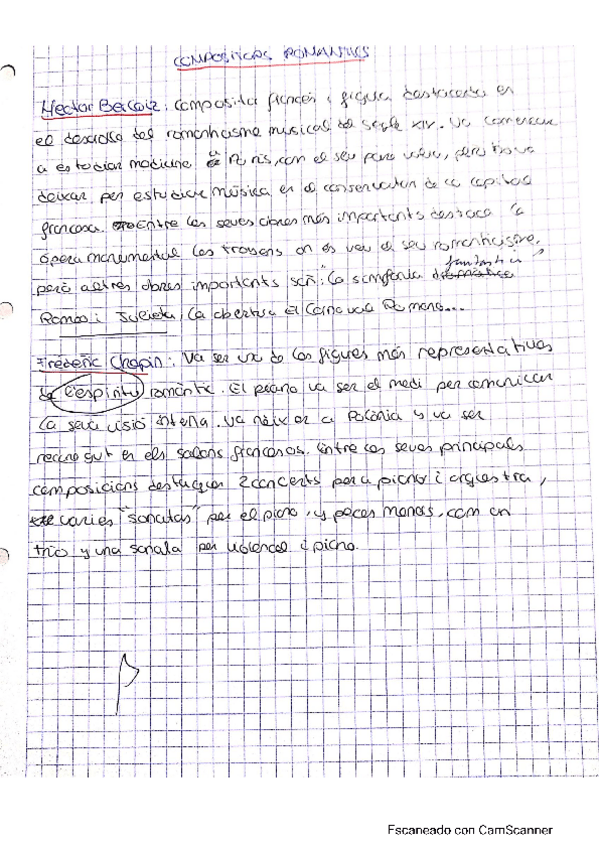 COMPOSITORS ROMANTICS
Hector Berlioz: Compositor francés i figura destacada en
el desarollo del romanticisme musical del segle XIV. Va comensar
a estudiar medicina a Paris, com el seu pare volia, pero
deixar per estudiar música en el conservatori de la capital
francesa. Entre les seves obres més importants destaca la
ópera monumental los troyens on es veu el seu romanticisme,
però altres obres importants són: la simfonia fantastica
Romeo i Julieta, la obertura El Carnaval Romano...
Frederic Chopin: Va ser un de les figures més representatives
de l'espiritu romàntic. El piano va ser el medi per comunicar
la seva visió interna. Va néixer a Polònia y va ser
recunegut en els salons francesos. Entre les seves principals
composicions destaquen 2 concerts per a piano i orquestra,
varies "sonatas" per el piano, y peces menors, com un
trio y una sonata per violoncel i piano.
Escaneado con CamScanner